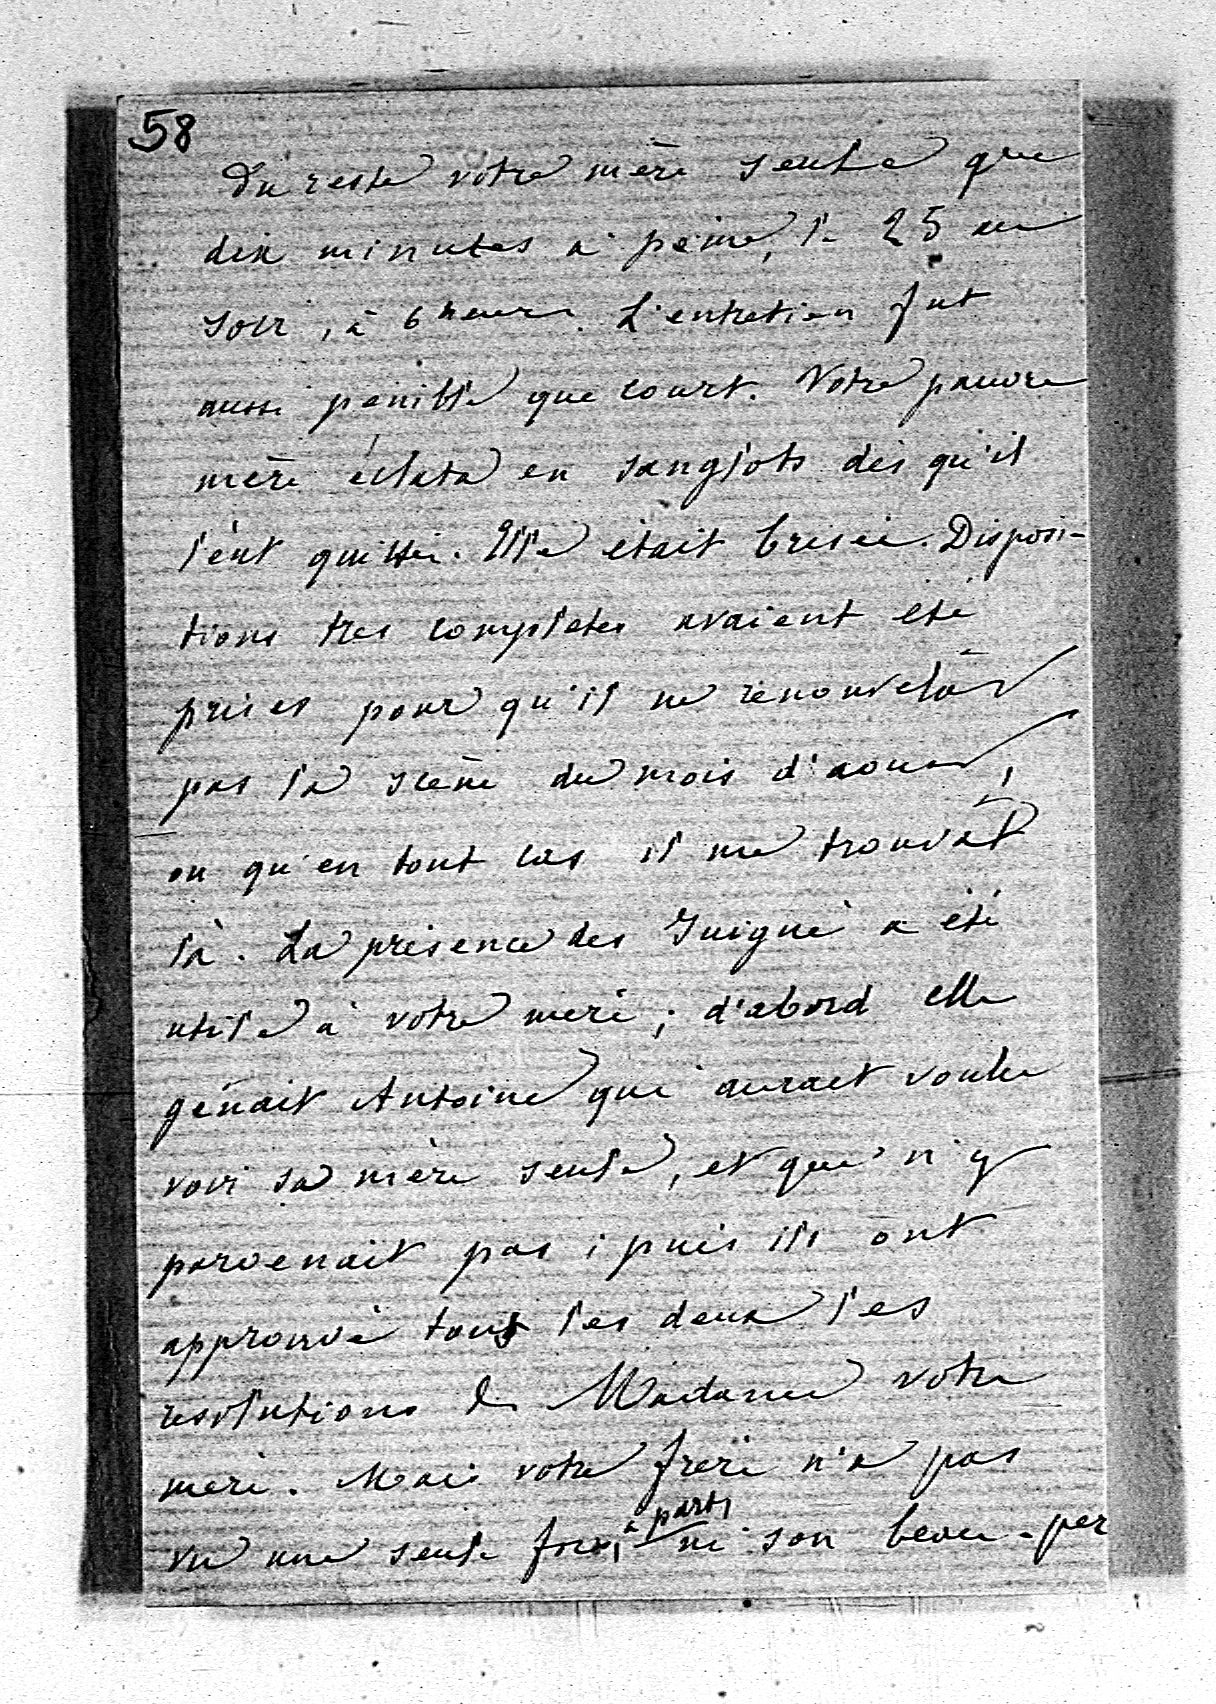 58
du reste votre mère seule que
dix minutes à peine, le 25 au
soir, à 6 heures. L'entretien fut
aussi pénible que court. Votre pauvre
mère éclata en sanglots dès qu'il
l'eut quittée. Elle était brisée. Disposi-
tions très complètes avaient été
prises pour qu'il ne renouvelât
pas la scène du mois d'aout,
ou qu'en tout cas il me trouvât
là. La présence des Juigné a été
utile à votre mère ; d'abord elle
gênait Antoine qui aurait voulu
voir sa mère seule, et qui n'y
parvenait pas ; puis ils ont
approuvé tous les deux les
résolutions de Madame votre
mère. Mais votre frère n'a pas
vu une seule fois, à part, ni son beau-per